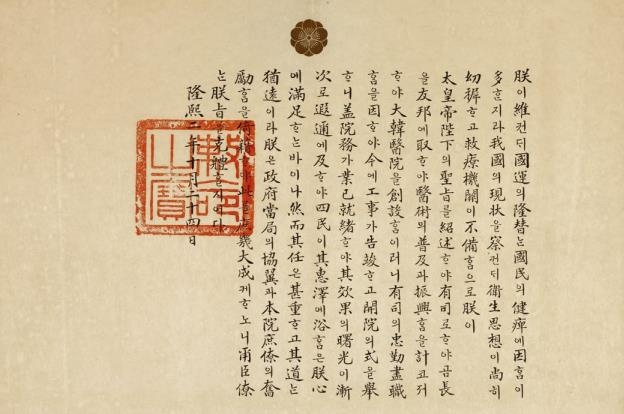 朕이維컨ᄃᆡ國運의隆替ᄂᆞᆫ國民의健痺에因ᄒᆞᆷ이
多ᄒᆞᆫ지라我國의現狀을察컨ᄃᆡ衛生思想이尙히
幼穉ᄒᆞ고救療機關이不備ᄒᆞᆷ으로朕이
太皇帝陛下의聖旨를紹述ᄒᆞ야有司로ᄒᆞ야곰長
을友邦에取ᄒᆞ야醫術의普及과振興ᄒᆞᆷ을計코저
ᄒᆞ야大韓醫院을創設ᄒᆞᆷ이러니有司의忠勤盡職
ᄒᆞᆷ을因ᄒᆞ야今에工事가告竣ᄒᆞ고開院의式을擧
ᄒᆞ니盖院務가業已就緖ᄒᆞ야其效果의曙光이漸
次로遐邇에及ᄒᆞ야四民이其惠澤에浴ᄒᆞᆷ은朕心
에滿足ᄒᆞᄂᆞᆫ바이나然而其任은甚重ᄒᆞ고其道ᄂᆞᆫ
猶遠이라朕은政府當局의協翼과本院庶僚의奮
勵ᄒᆞᆷ을倚賴ᄒᆞ야此를庶幾大成케ᄒᆞ노니爾臣僚
ᄂᆞᆫ朕旨를克體ᄒᆞᆯ지어다
隆熙二年十月二十四日
勅命之寶